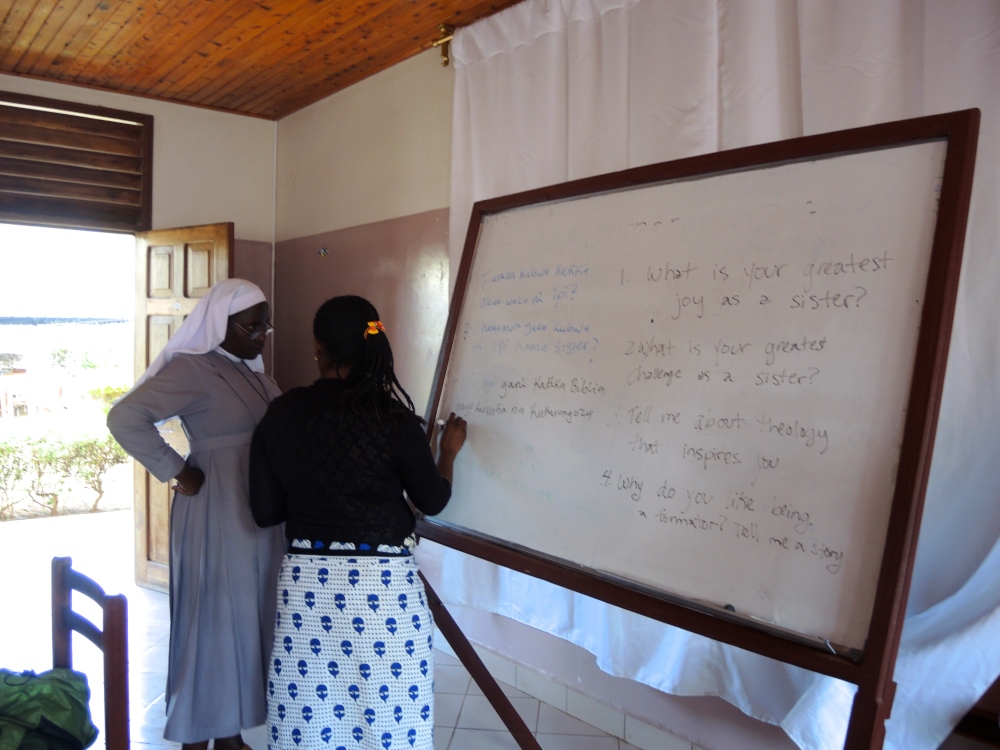 1. Furaha kubwa katika
wako ni ipi?
2. kubwa
ni ipi kama sister?
gani katika Biblia
na Kukuongoza
1. What is your greatest
joy as a sister?
2 What is your greatest
challenge as a sister?
3. Tell me about theology
that inspires you
4. Why do you like being
a formator? Tell me a story